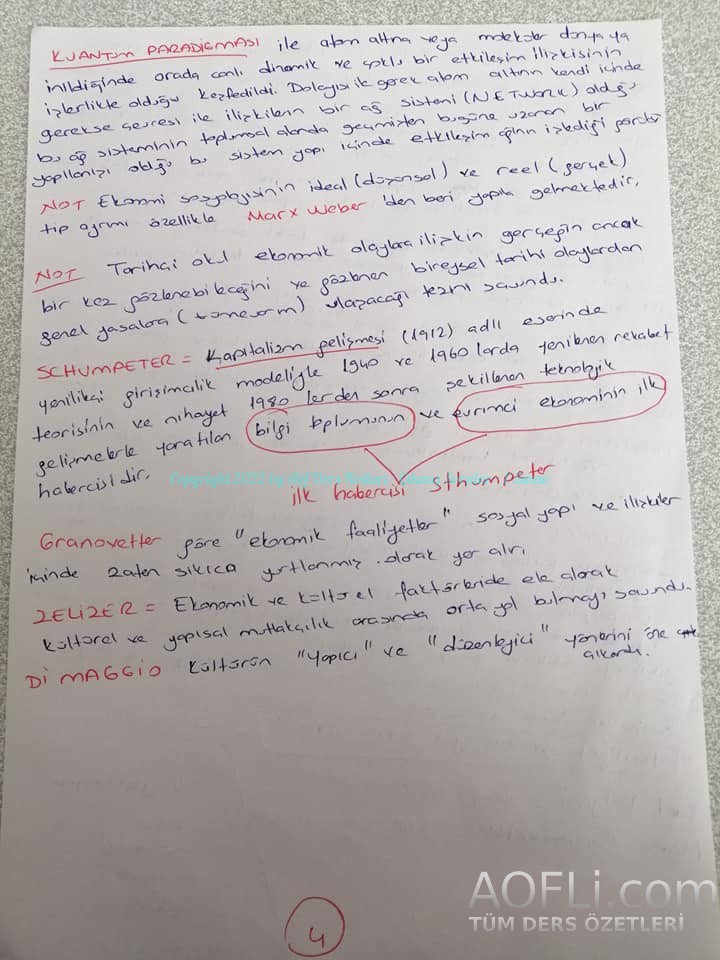 KUANTUM PARADİGMASI ile atom altına veya moleküler dünyaya
inildiğinde orada canlı dinamik ve çoklu bir etkileşim ilişkisinin
işlerlikte olduğu keşfedildi. Dolayısı ile gerek atom altının kendi içinde
gerekse çevresi ile ilişkilerin bir ağ sistemi (NETWORK) olduğu
bu ağ sisteminin toplumsal alanda geçmişten bugüne uzanan bir
yapılanışı olduğu bu sistem yapı içinde etkileşim ağının işlediği
NOT Ekonomi sosyolojisinin ideal (düşünsel) ve reel (gerçek)
tip ayrımı özellikle Marx Weber 'den beri yapıla gelmektedir.
NOT Tarihçi okul ekonomik olaylara ilişkin gerçeğin ancak
bir kez gözlenebileceğini ve gözlenen bireysel tarihi olaylardan
genel yasalara (tümevarım) ulaşacağı tezini savundu.
SCHUMPETER = Kapitalizm gelişmesi (1912) adlı eserinde
yenilikçi girişimcilik modeliyle 1940 ve 1960 larda yenilenen rekabet
teorisinin ve nihayet 1980 lerden sonra şekillenen teknolojik
gelişmelerle yaratılan bilgi toplumunun ve evrimci ekonominin ilk
habercisidir.
ilk habercisi Sthumpeter
Granovetter göre "ekonomik faaliyetler" sosyal yapı ve ilişkiler
içinde zaten sıkıca yurtlanmış olarak yer alır.
ZELİZER = Ekonomik ve kültürel faktörleride ele alarak
kültürel ve yapısal mutlakçılık arasında orta yol bulmayı savundu.
Dİ MAGGİO Kültürün "yapıcı" ve "düzenleyici" yönlerini öne
çıkardı.
4
AOFLi.com
TÜM DERS ÖZETLERİ